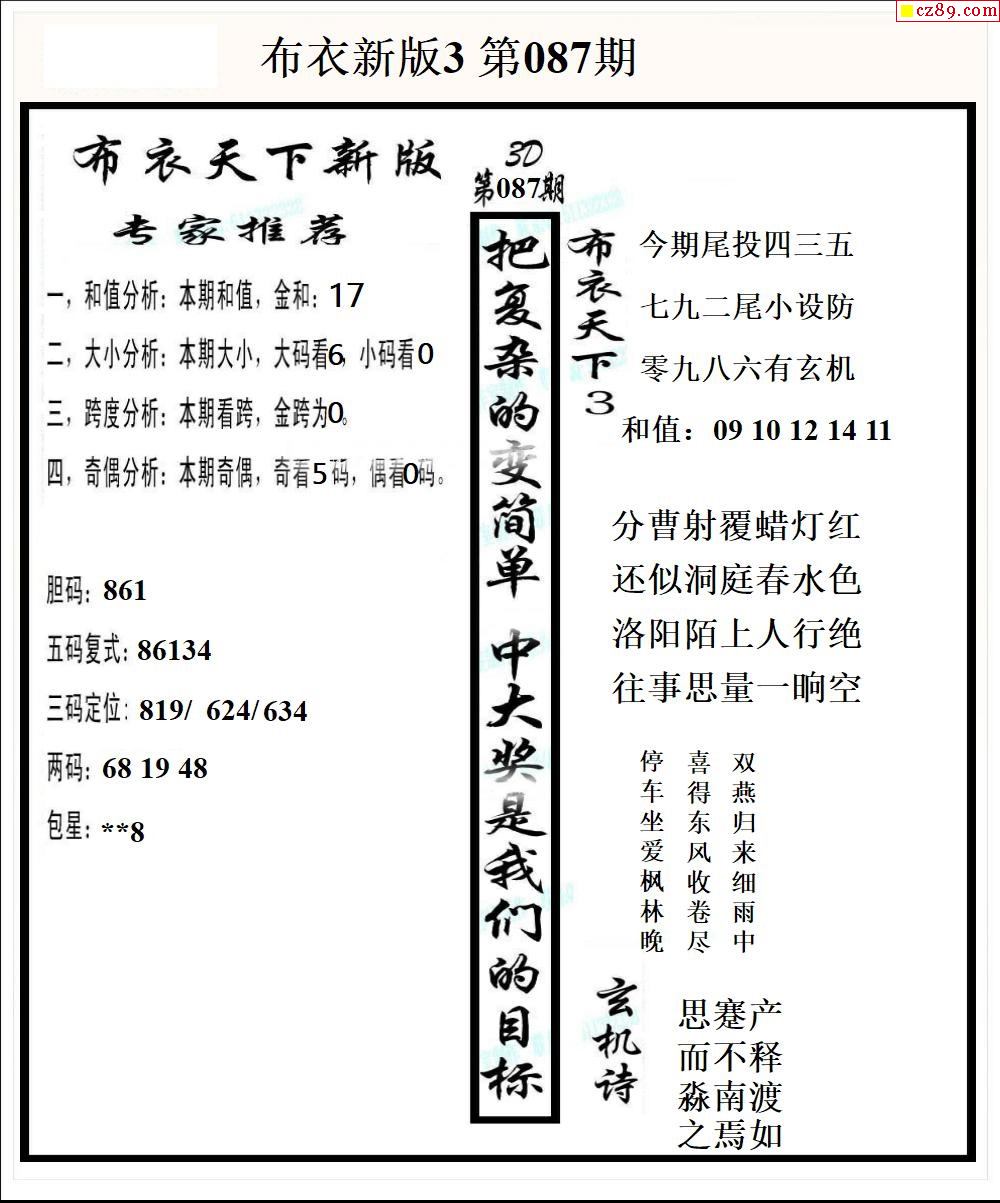 cz89.com
布衣新版3 第087期
布衣天下新版
专家推荐
一，和值分析：本期和值，金和：17
二，大小分析：本期大小，大码看6，小码看0
三，跨度分析：本期看跨，金跨为0。
四，奇偶分析：本期奇偶，奇看5码，偶看0码。
胆码：861
五码复式：86134
三码定位：819/ 624/ 634
两码：68 19 48
包星：**8
3D
第087期
把复杂的变简单 中大奖是我们的目标
布衣天下3
今期尾投四三五
七九二尾小设防
零九八六有玄机
和值：09 10 12 14 11
分曹射覆蜡灯红
还似洞庭春水色
洛阳陌上人行绝
往事思量一晌空
停车坐爱枫林晚
喜得东风收卷尽
双燕归来细雨中
玄机诗
思蹇产
而不释
淼南渡
之焉如